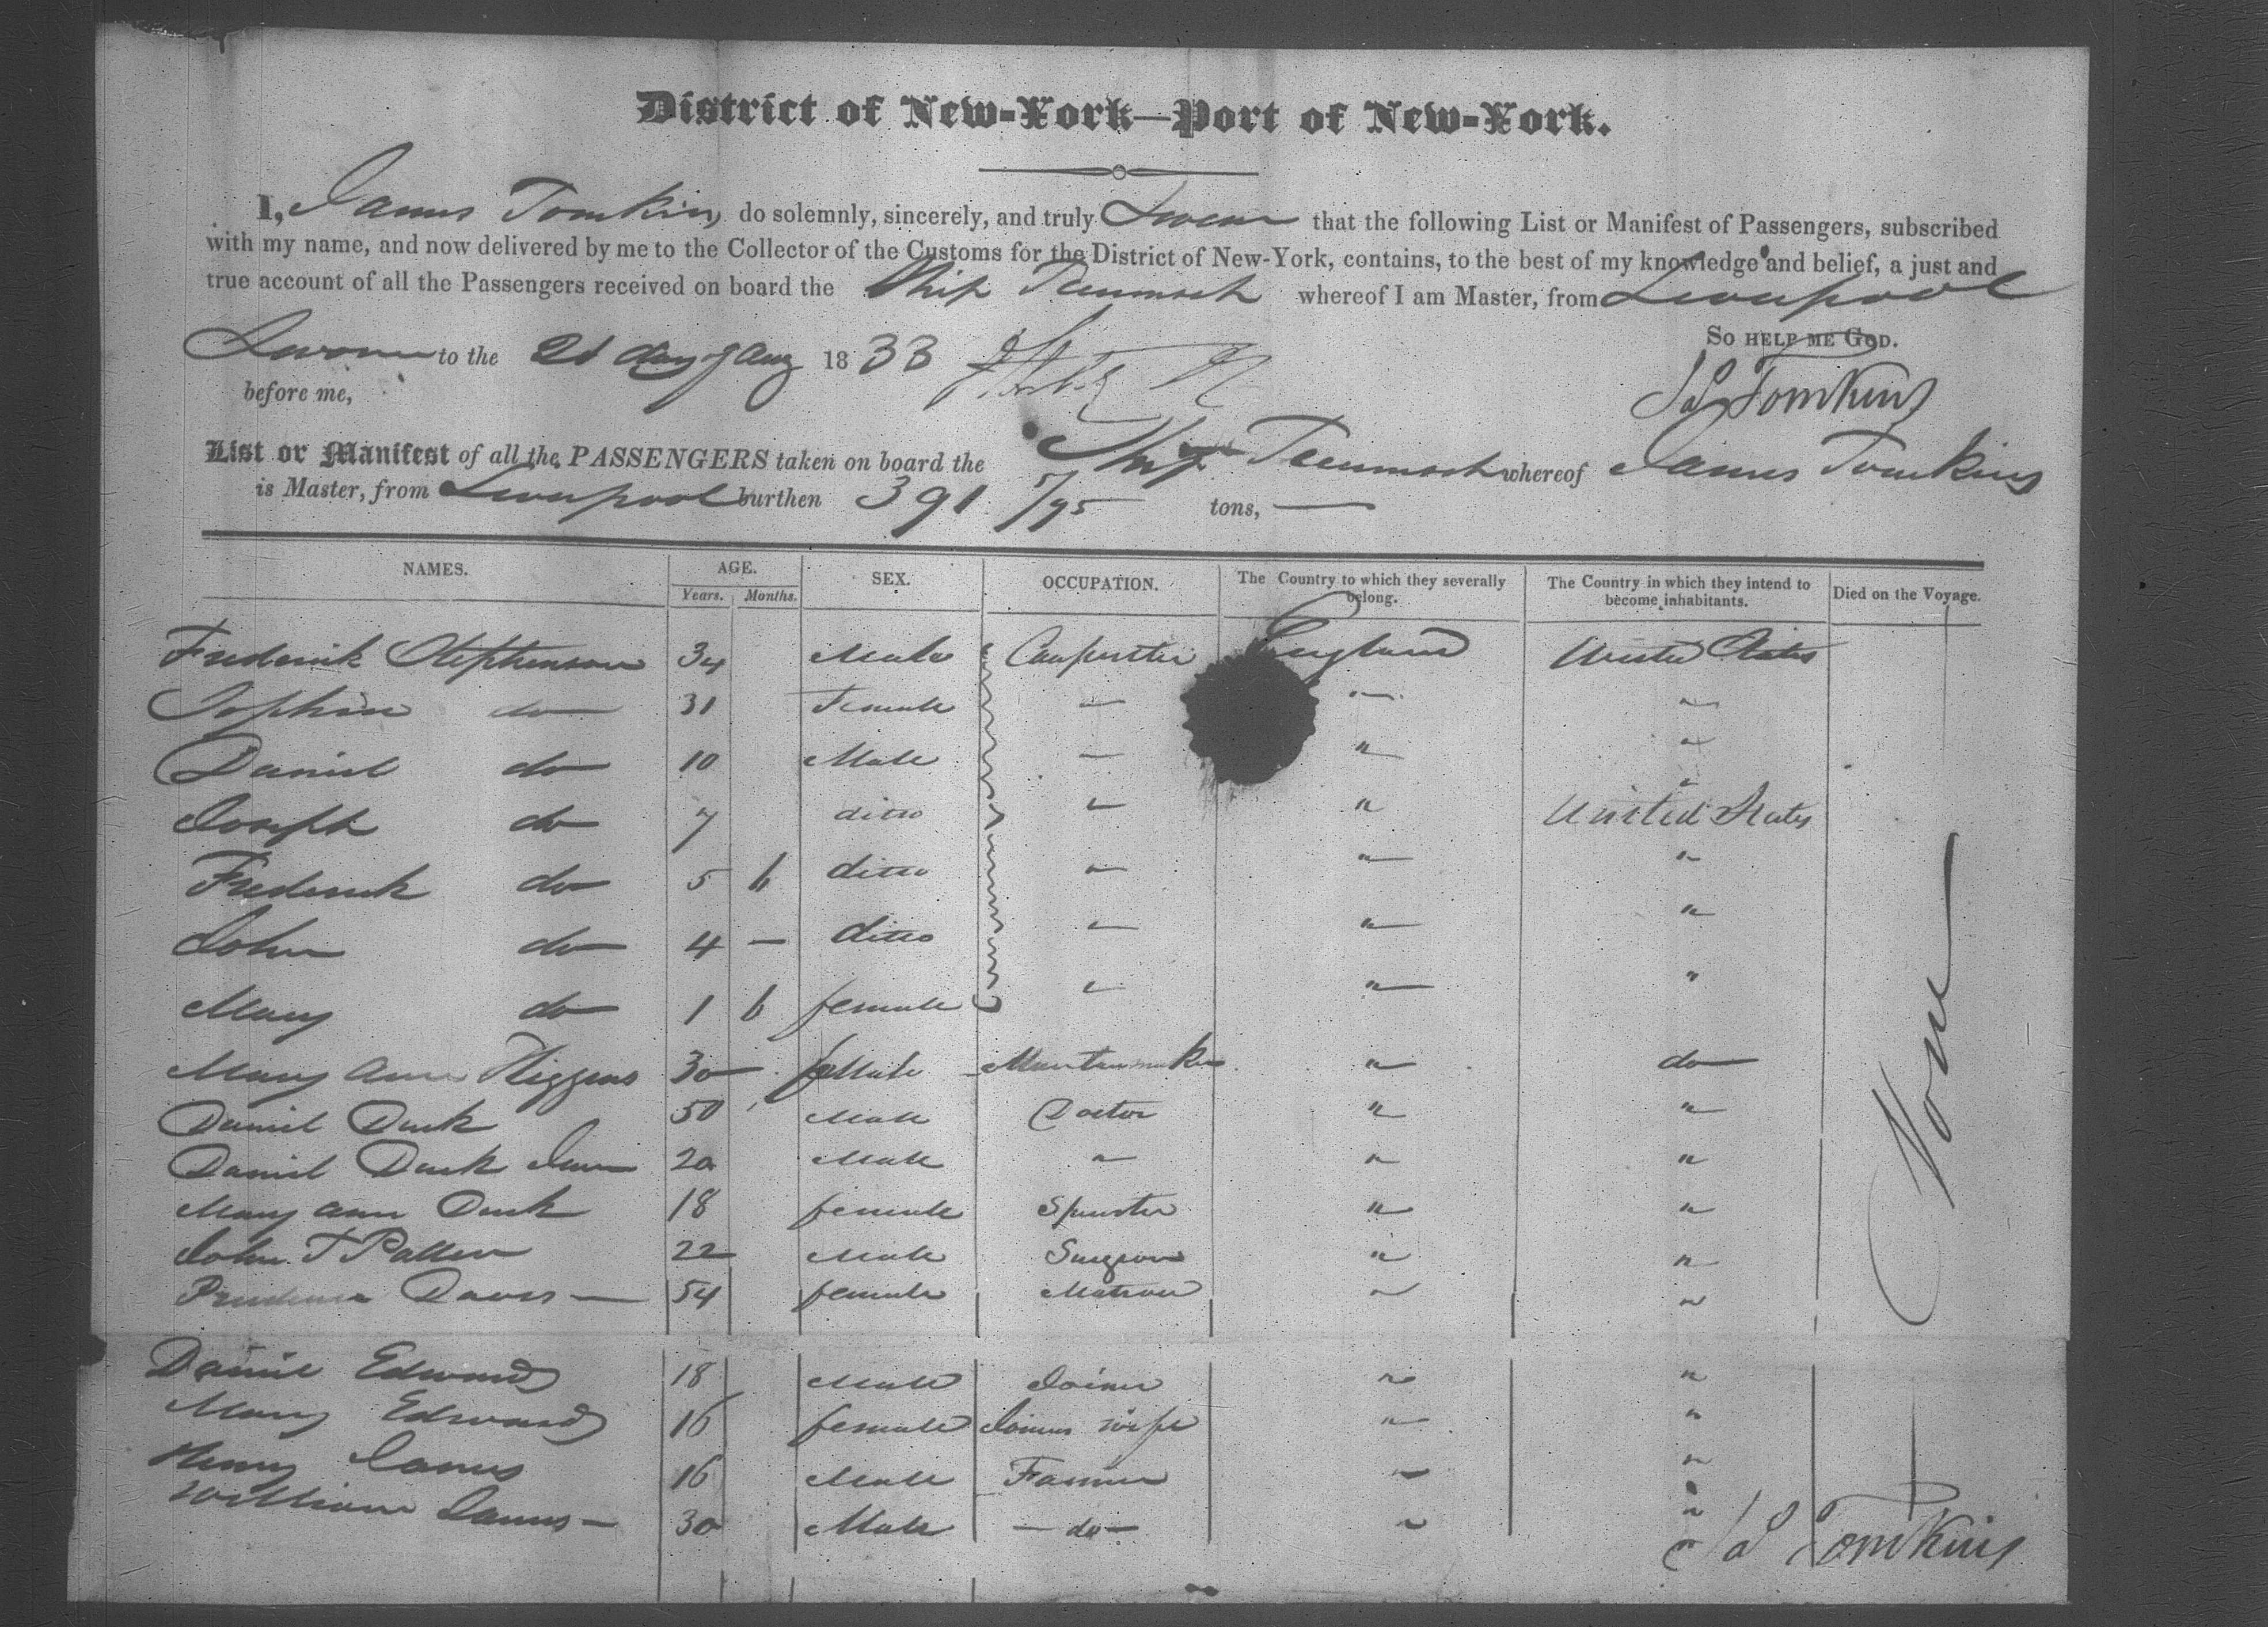 District of New-York—Port of New-York.
I, James Tomkins do solemnly, sincerely, and truly Swear that the following List or Manifest of Passengers, subscribed
with my name, and now delivered by me to the Collector of the Customs for the District of New-York, contains, to the best of my knowledge and belief, a just and
true account of all the Passengers received on board the Ship Tecumseh whereof I am Master, from Liverpool
So HELP ME GOD.
Sworn to the 21 day of Aug 1833
Jas Tomkins
before me,
List or Manifest of all the PASSENGERS taken on board the Ship Tecumseh whereof James Tomkins
is Master, from Liverpool burthen 391 5/95 tons, —
NAMES. AGE. Years. Months. SEX. OCCUPATION. The Country to which they severally belong. The Country in which they intend to become inhabitants. Died on the Voyage.
Frederick Stephenson 34 Male Carpenter England United States
do 31 Female — " "
Daniel do 10 Male — " "
Joseph do 7 ditto " " United States
Frederick do 5 6 ditto " " "
John do 4 — ditto " " "
Mary do 1 6 female " " "
Mary Ann Higgins 30 feMale Mantuamaker " do
Daniel Duck 50 Male Doctor " "
Daniel Duck Junr 20 Male " " "
Mary Ann Duck 18 female Spinster " "
John T Patten 22 Male Surgeon " "
Prudence Davis — 54 female Matron " "
Daniel Edwards 18 Male Joiner " "
Mary Edwards 16 female Joiners wife " "
Henry James 16 Male Farmer " "
William James — 30 Male — do — " "
None
Jas Tomkins